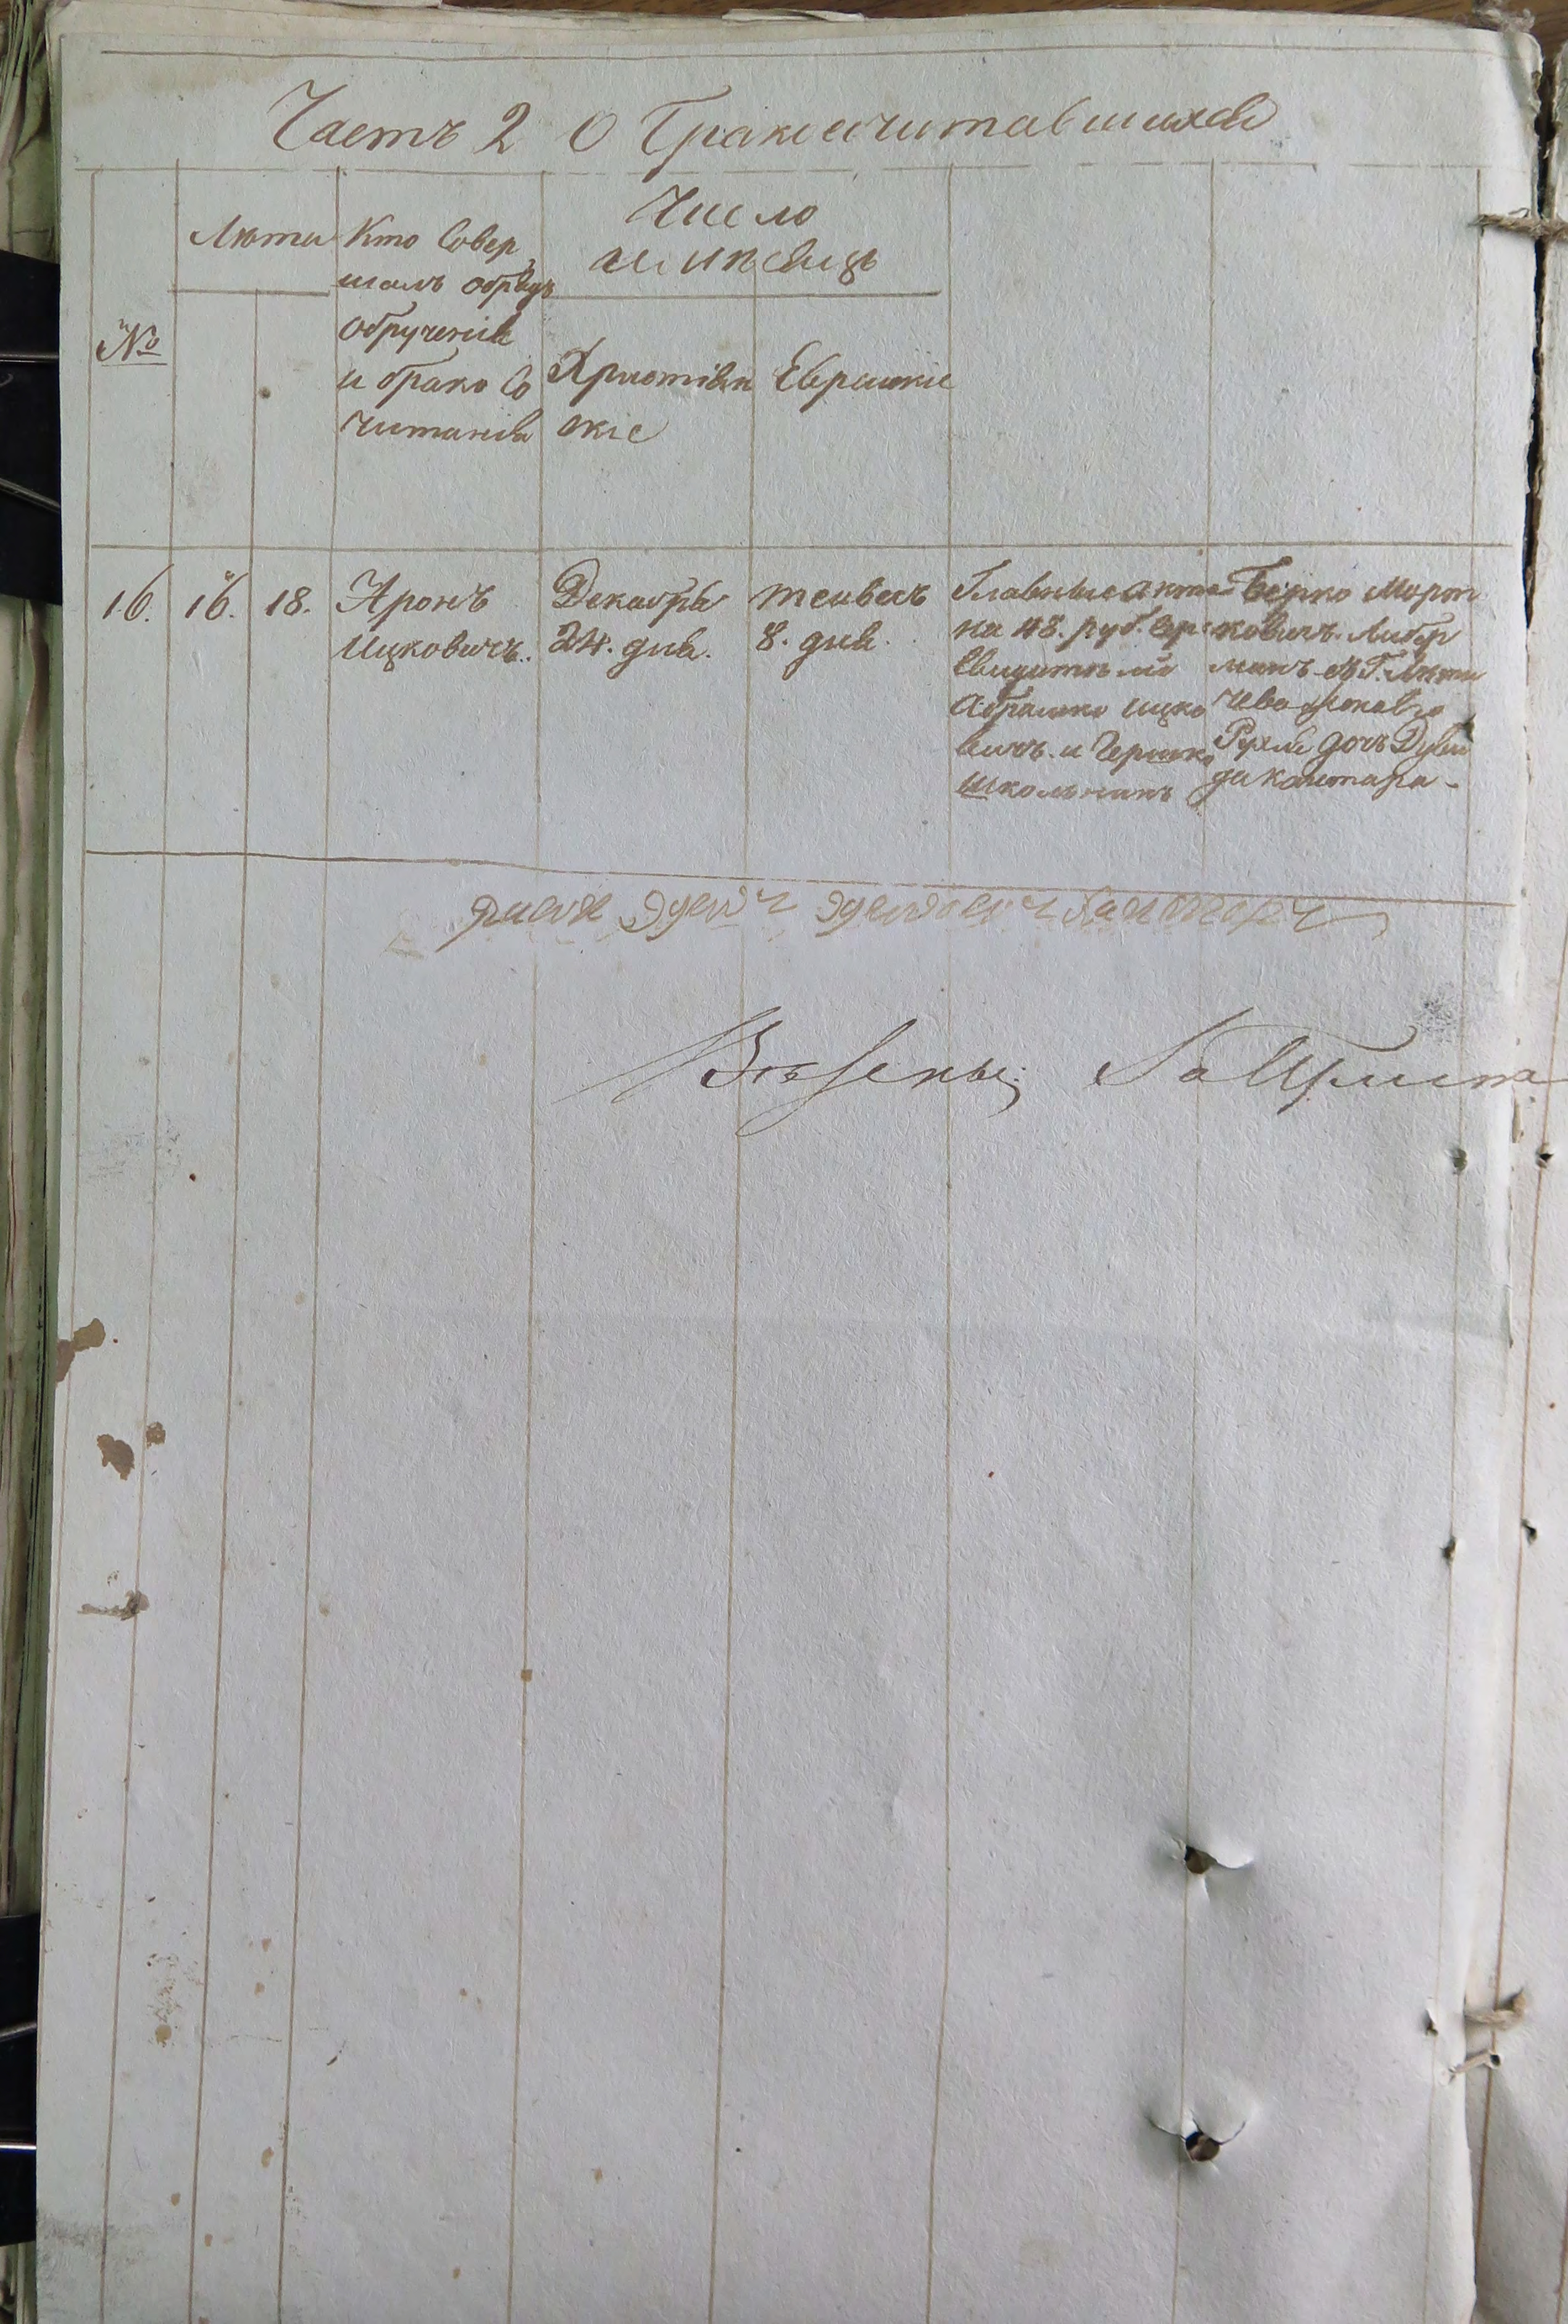 Часть 2 О Бракосочитавшихся
№
Лѣта
Кто Совер
шалъ обрядъ
обрученія
и брако Со
читанія
Число
и мѣсяцъ
Христіян
скіе
Еврейскіе
16.
16.
18.
Аронъ
Ицковичъ.
Декабря
24. дня.
тейвесъ
8. дня.
Главные акта
на 48. руб. сер:
Свидѣтели
Абрамко Ицко
вичъ. и Гершко
Школьникъ
Берко Морт
ковичъ. Либер
манъ съ Г. Лѣти
чева
Рухля дочъ Дуви
да Кантара -